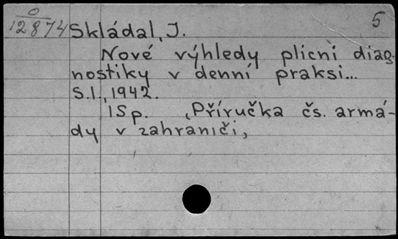 O
12874
5
Skládal, J.
Nové výhledy plicní diag-
nostiky v denní praksi...
S.l., 1942.
1Sp. „Příručka čs. armá-
dy v zahraničí,